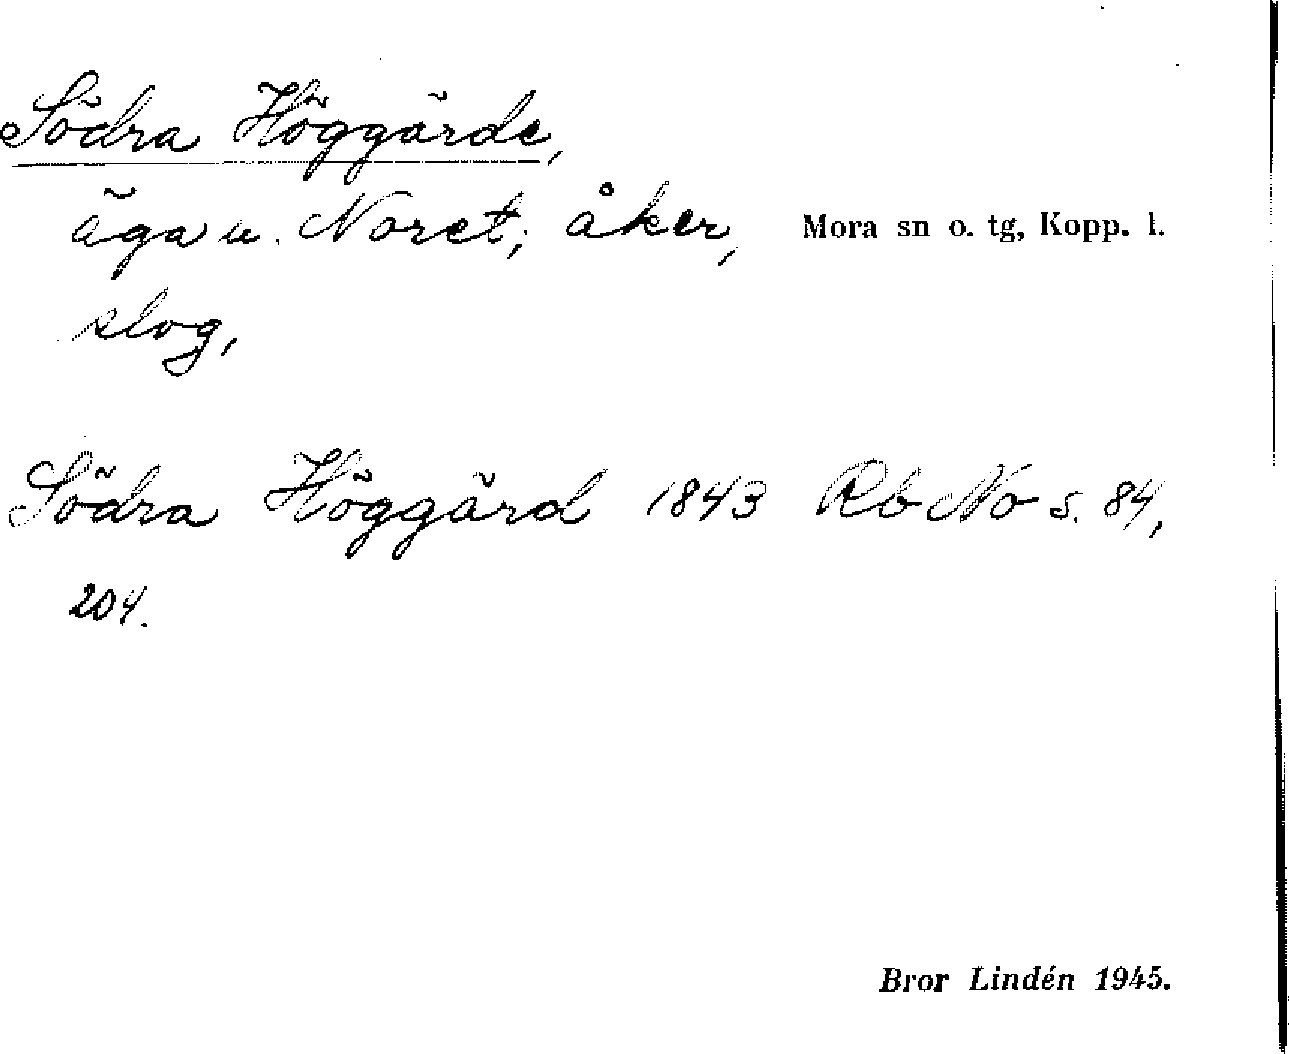 Södra Höggärde,
äga u. Noret; åker, Mora sn o. tg, Kopp. l.
slog,
Södra Höggärd 1843 Rb No s. 84,
204.
Bror Lindén 1945.